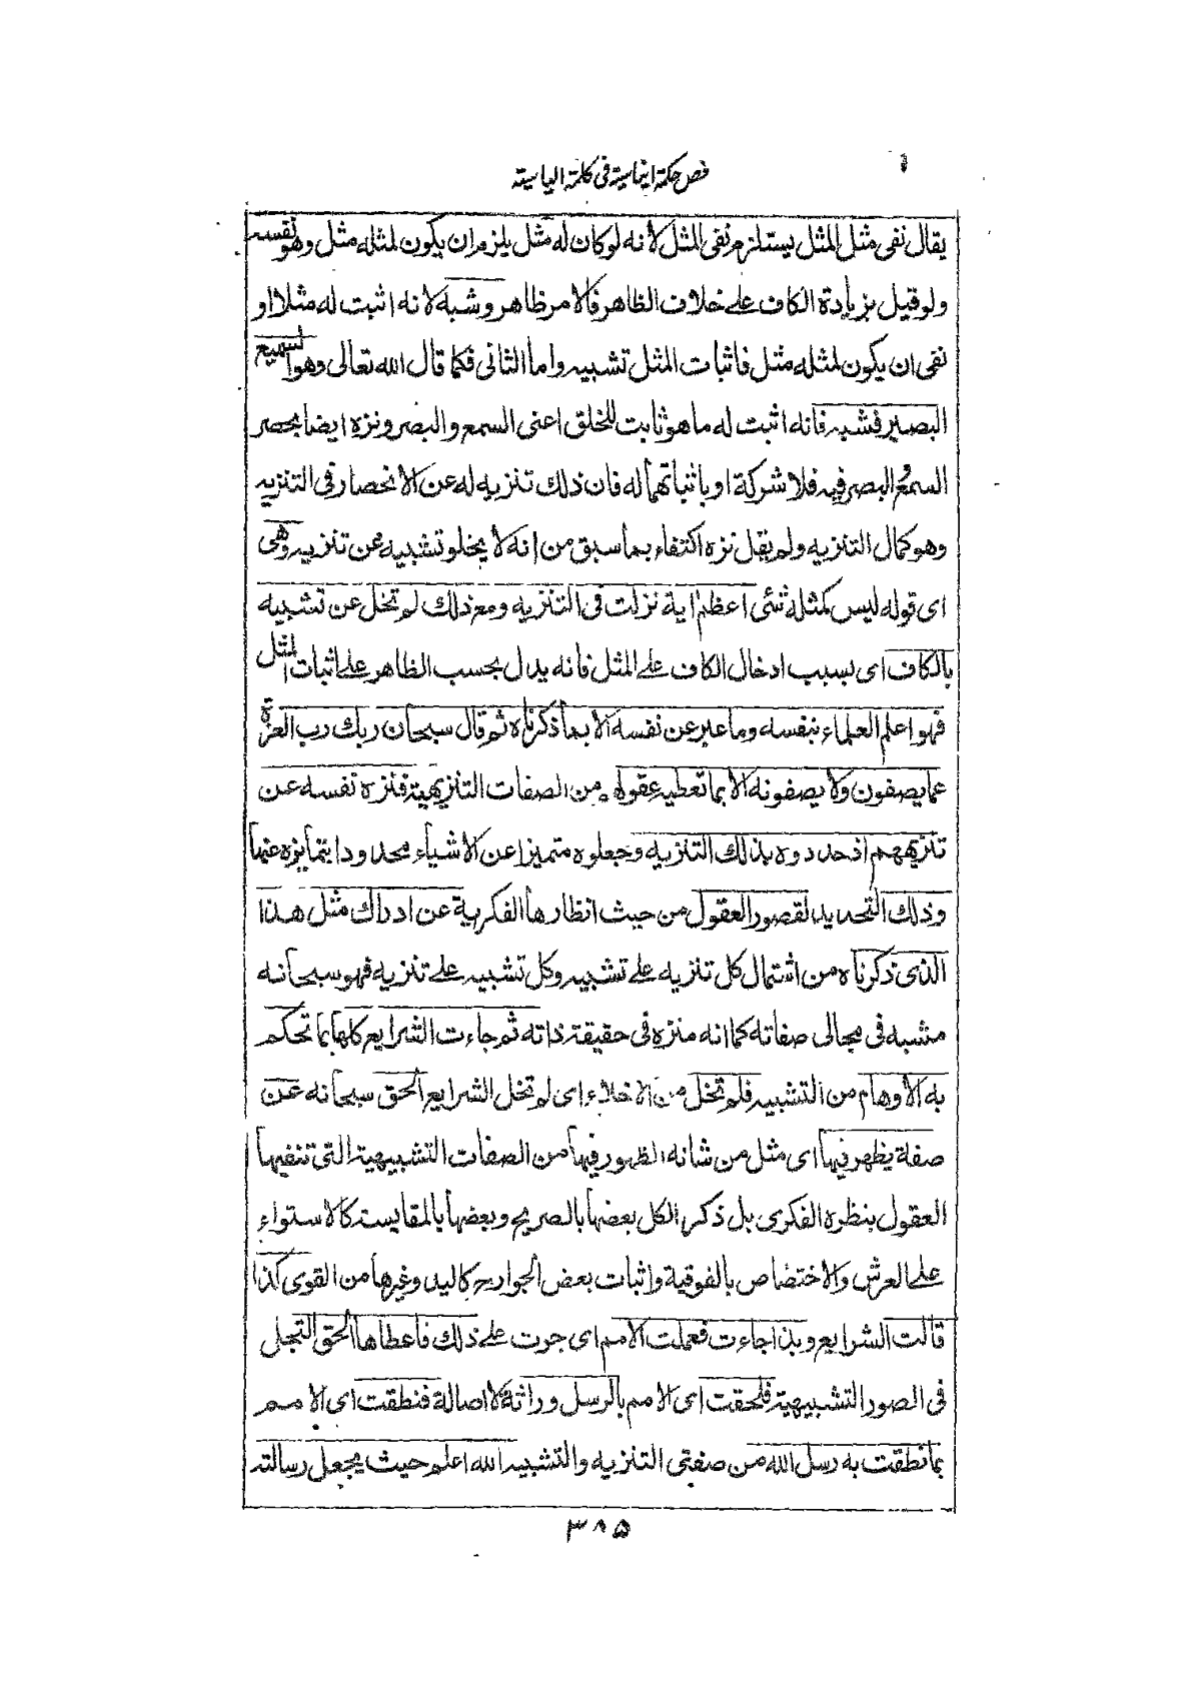 فص حكمة ايناسية فى كلمة الياسية
يقال نفى مثل المثل يستلزم نفى المثل لانه لو كان له مثل يلزم ان يكون لمثله مثل وهو نفسه
ولو قيل بزيادة الكاف على خلاف الظاهر فالامر ظاهر وشبه لانه اثبت له مثلا او
نفى ان يكون لمثله مثل فاثبات المثل تشبيه واما الثانى فكما قال الله تعالى وهو السميع
البصير فشبه فانه اثبت له ما هو ثابت للخلق اعنى السمع والبصر ونزه ايضا بحصر
السمع والبصر فيه فلا شركة او باثباتهما له فان ذلك تنزيه له عن الانحصار فى التنزيه
وهو كمال التنزيه ولم يقل نزه اكتفاء بما سبق من انه لا يخلو تشبيه عن تنزيه وهى
اى قوله ليس كمثله شئى اعظم اية نزلت فى التنزيه ومع ذلك لم تخل عن تشبيه
بالكاف اى بسبب ادخال الكاف على المثل فانه يدل بحسب الظاهر على اثبات المثل
فهو اعلم العلماء بنفسه وما عبر عن نفسه الا بما ذكرناه ثم قال سبحان ربك رب العزة
عما يصفون ولا يصفونه الا بما تعطيه عقولهم من الصفات التنزيهية فنزه نفسه عن
تنزيههم اذ حددوه بذلك التنزيه وجعلوه متميزا عن الاشياء محدودا بتمايزه عنها
وذلك التحديد لقصور العقول من حيث انظارها الفكرية عن ادراك مثل هذا
الذى ذكرناه من اشتمال كل تنزيه على تشبيه وكل تشبيه على تنزيه فهو سبحانه
مشبه فى مجالى صفاته كما انه منزه فى حقيقة ذاته ثم جاءت الشرايع كلها بما تحكم
به الاوهام من التشبيه فلم تخل من الاخلاء اى لم تخل الشرايع الحق سبحانه عن
صفة يظهر فيها اى مثل من شانه الظهور فيها من الصفات التشبيهية التى تنفيها
العقول بنظره الفكرى بل ذكر الكل بعضها بالصريح وبعضها بالمقايسة كالاستواء
على العرش والاختصاص بالفوقية واثبات بعض الجوارح كاليد وغيرها من القوى كذا
قالت الشرايع وبذا جاءت فعملت الامم اى جرت على ذلك فاعطاها الحق التجلى
فى الصور التشبيهية فلحقت اى الامم بالرسل وراثة لا اصالة فنطقت اى الامم
بما نطقت به رسل الله من صفتى التنزيه والتشبيه الله اعلم حيث يجعل رسالته
٣٨٥